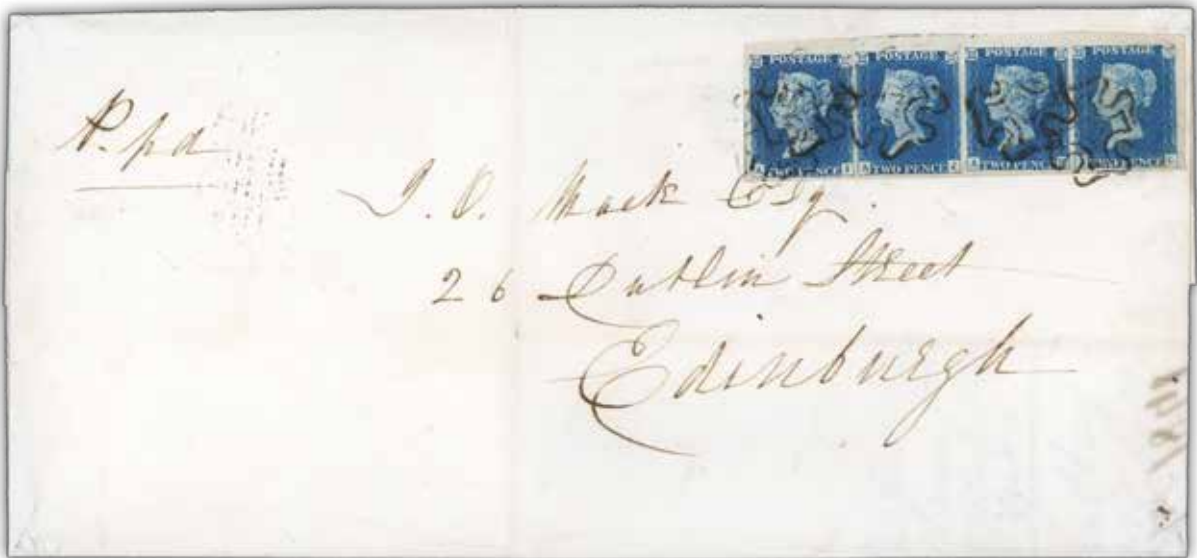 POSTAGE POSTAGE POSTAGE POSTAGE
TWO PENCE TWO PENCE TWO PENCE TWO PENCE
P. pd
J. O. Mack Esq.
26 Dublin Street
Edinburgh